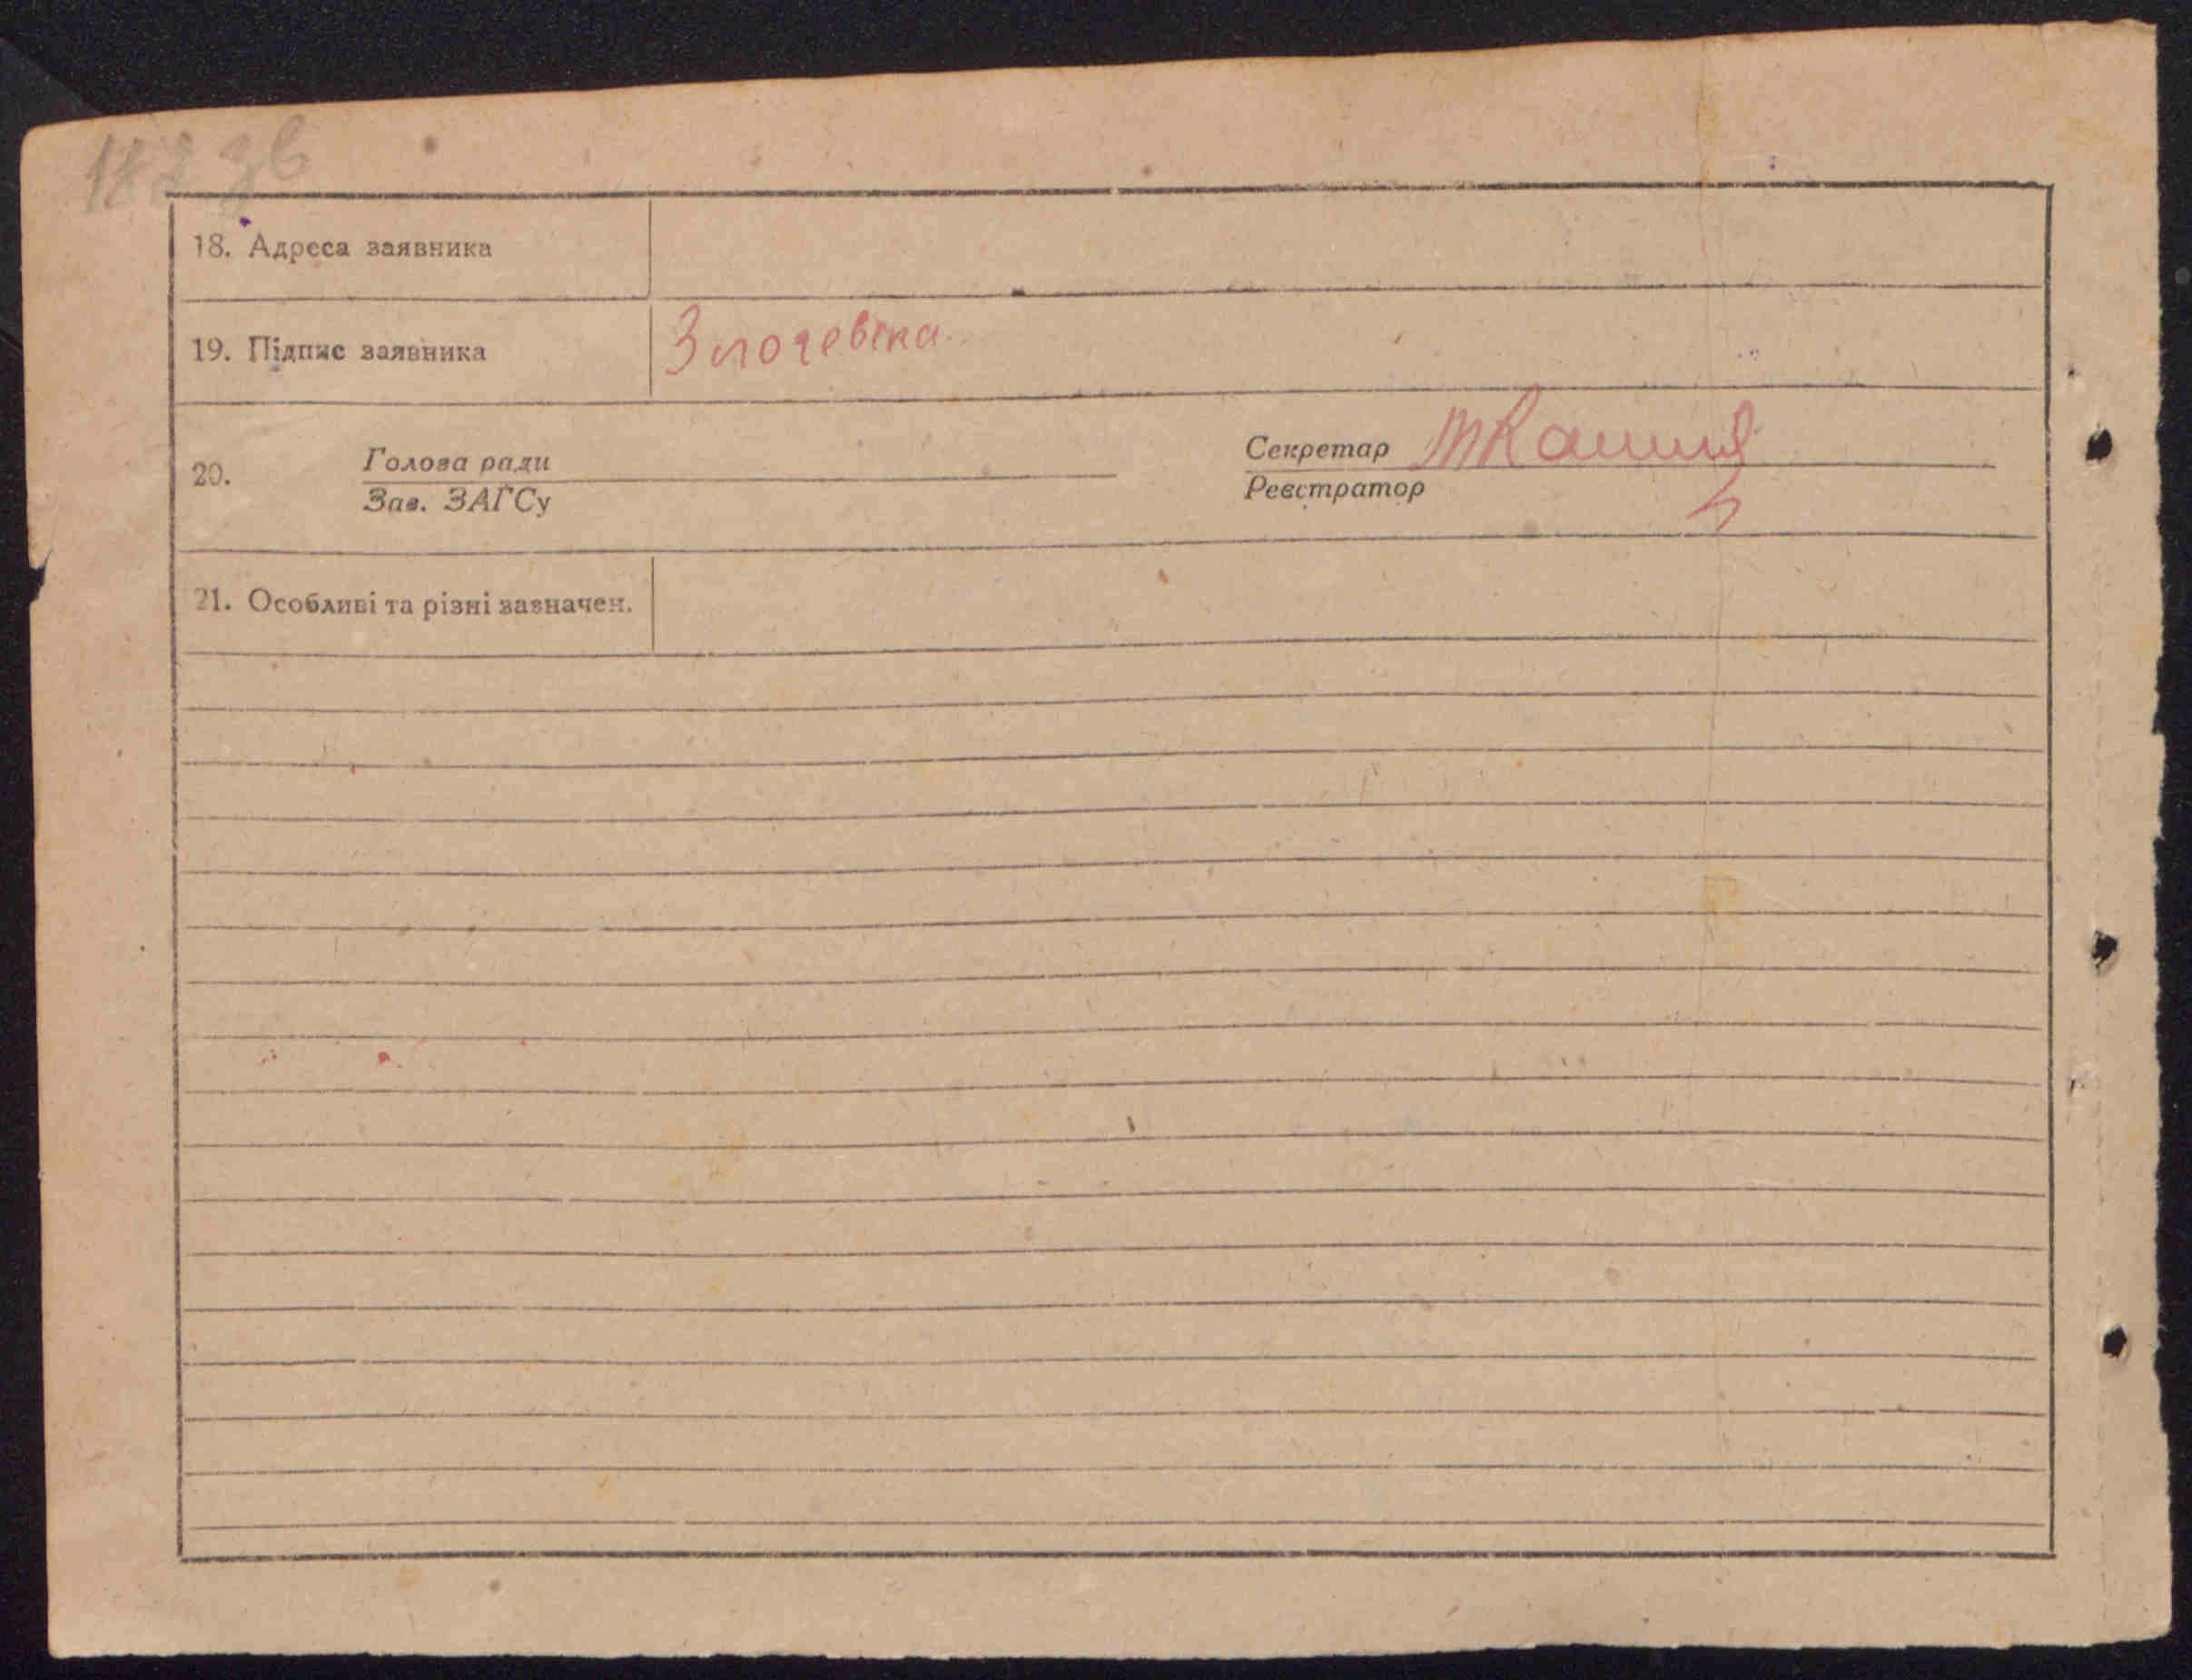 18. Адреса заявника
19. Підпис заявника Злочевска.
20. Голова ради
Зав. ЗАГСу
Секретар
Реєстратор
21. Особливі та різні зазначен.